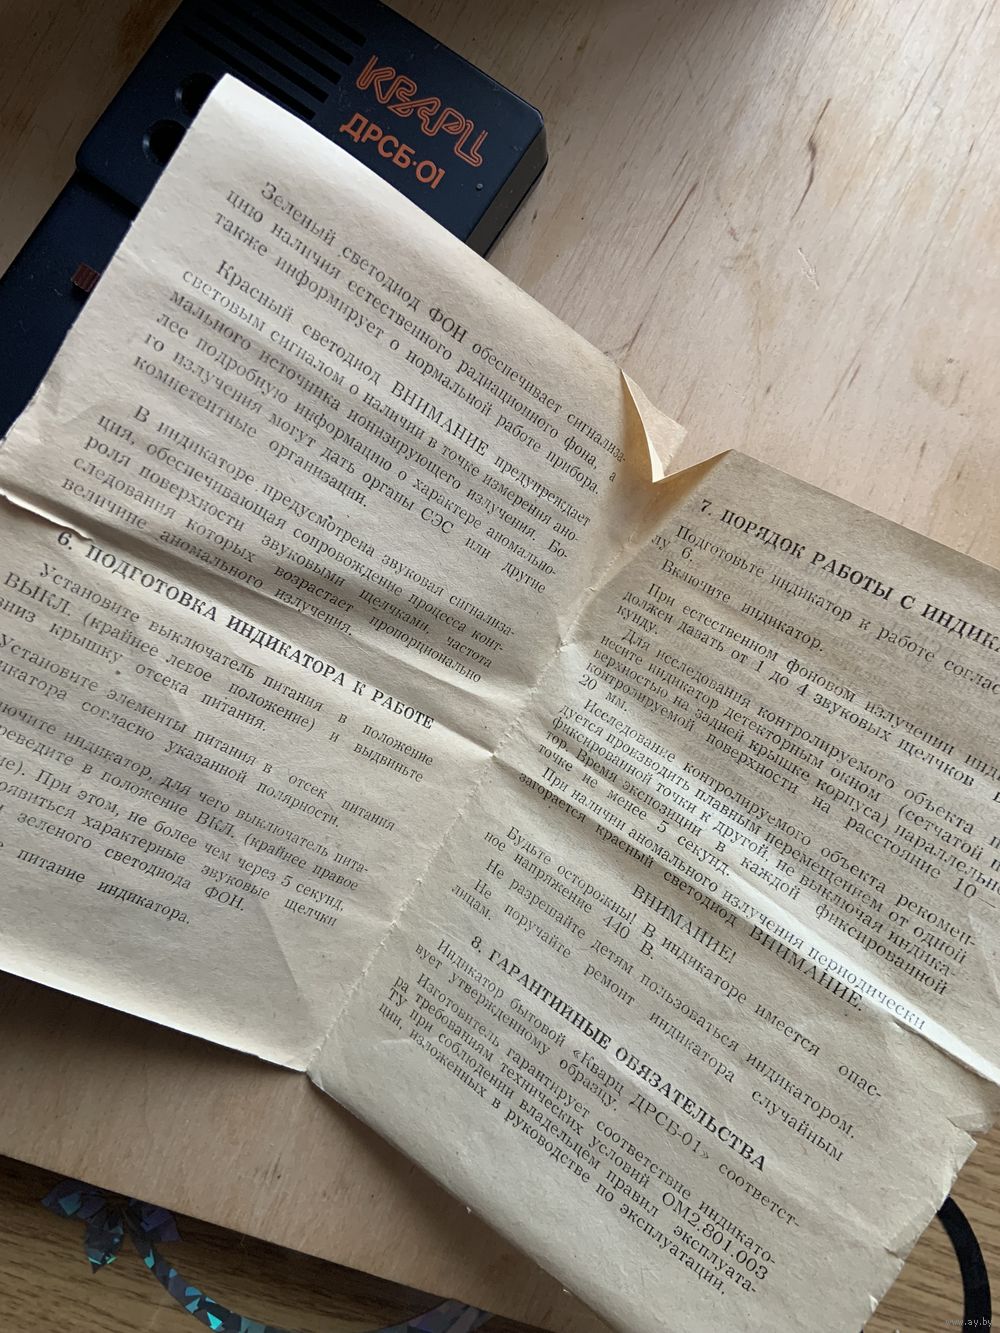 КВАРЦ
ДРСБ-01
Зеленый светодиод ФОН обеспечивает сигнализа-
цию наличия естественного радиационного фона, а
также информирует о нормальной работе прибора.
Красный светодиод ВНИМАНИЕ предупреждает
световым сигналом о наличии в точке измерения ано-
мального источника ионизирующего излучения. Бо-
лее подробную информацию о характере аномально-
го излучения могут дать органы СЭС или другие
компетентные организации.
В индикаторе предусмотрена звуковая сигнализа-
ция, обеспечивающая сопровождение процесса конт-
роля поверхности звуковыми щелчками, частота
следования которых возрастает пропорционально
величине аномального излучения.
6. ПОДГОТОВКА ИНДИКАТОРА К РАБОТЕ
Установите выключатель питания в положение
ВЫКЛ. (крайнее левое положение) и выдвиньте
вниз крышку отсека питания.
Установите элементы питания в отсек питания
дикатора согласно указанной полярности.
лючите индикатор, для чего выключатель пита-
реведите в положение ВКЛ. (крайнее правое
ие). При этом, не более чем через 5 секунд,
оявиться характерные звуковые щелчки
зеленого светодиода ФОН.
е питание индикатора.
7. ПОРЯДОК РАБОТЫ С ИНДИКА
Подготовьте индикатор к работе соглас
лу 6.
Включите индикатор.
При естественном фоновом излучении инди
должен давать от 1 до 4 звуковых щелчков в
кунду.
Для исследования контролируемого объекта п
несите индикатор детекторным окном (сетчатой п
верхностью на задней крышке корпуса) параллельн
контролируемой поверхности на расстояние 10—
20 мм.
Исследование контролируемого объекта рекомен-
дуется производить плавным перемещением от одной
фиксированной точки к другой, не выключая индика-
тор. Время экспозиции в каждой фиксированной
точке не менее 5 секунд.
При наличии аномального излучения периодически
загорается красный светодиод ВНИМАНИЕ.
ВНИМАНИЕ!
Будьте осторожны! В индикаторе имеется опас-
ное напряжение 440 В.
Не разрешайте детям пользоваться индикатором.
Не поручайте ремонт индикатора случайным
лицам.
8. ГАРАНТИЙНЫЕ ОБЯЗАТЕЛЬСТВА
Индикатор бытовой «Кварц ДРСБ-01» соответст-
вует утвержденному образцу.
Изготовитель гарантирует соответствие индикато-
ра требованиям технических условий ОМ2.801.003
ТУ при соблюдении владельцем правил эксплуата-
ции, изложенных в руководстве по эксплуатации.
www.ay.by